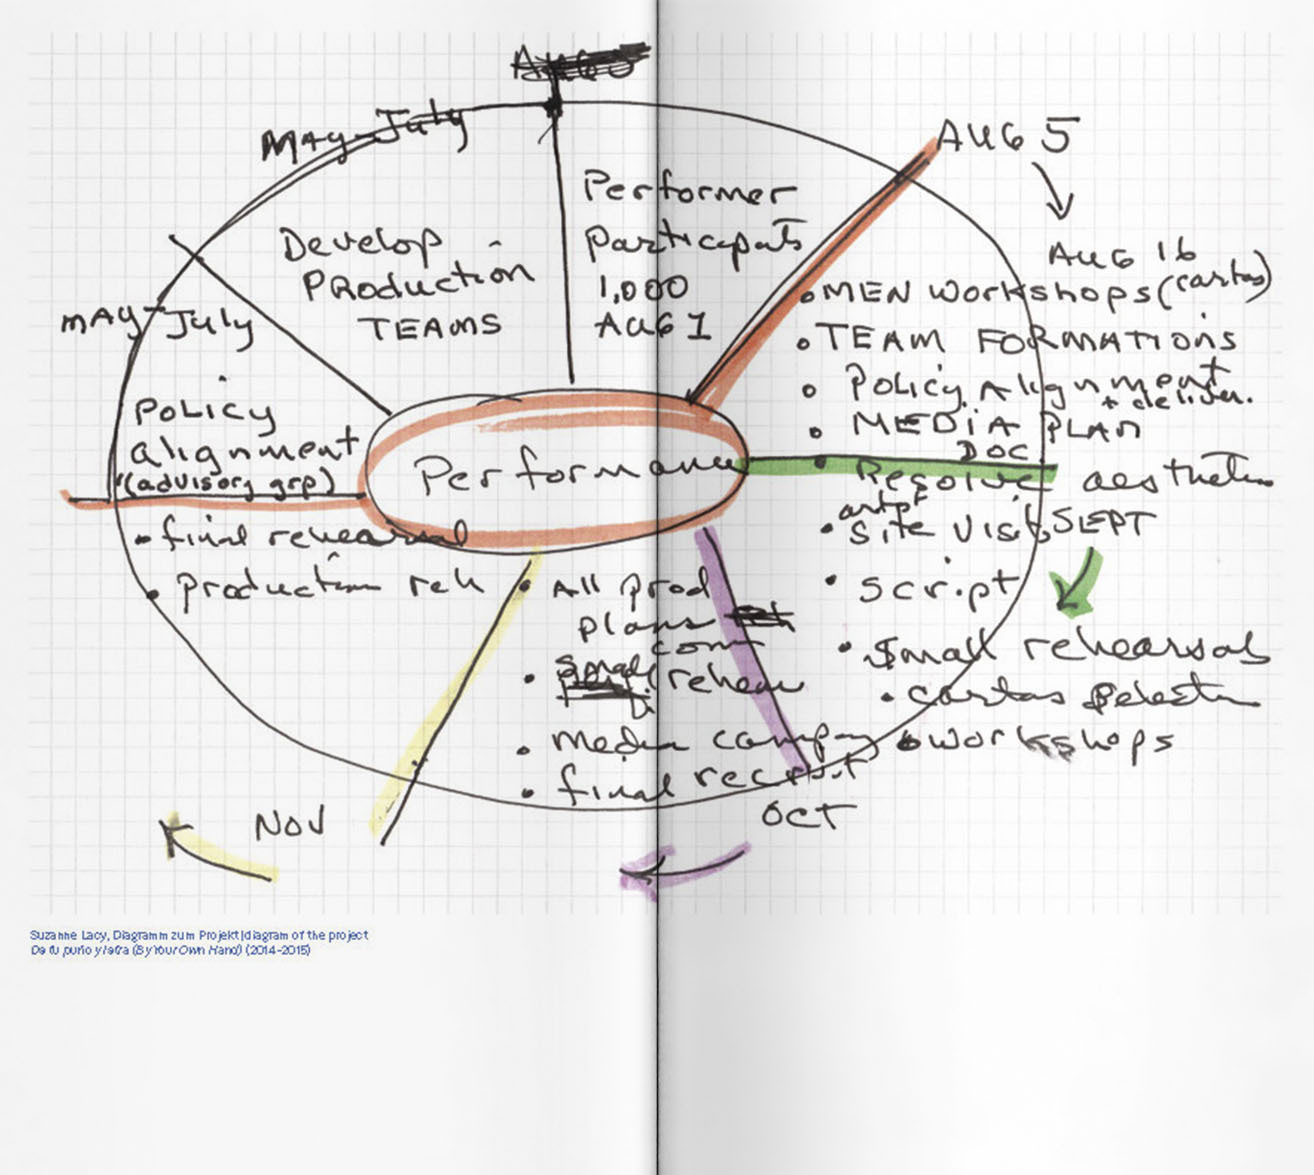 MAY-July
AUG 5
AUG 16
Performer
Participats
1,000
AUG 1
Develop
PRODUCTION
TEAMS
MAY-July
POLICY
alignment
(advisory grp)
Performance
• MEN Workshops (cartas)
• TEAM FORMATIONS
• POLICY Alignment
+ deliver.
• MEDIA PLAN
DOC
• Resolve aesthetic
• Site Visit
SEPT
• Script
• Small rehearsals
• cartas selectn
• workshops
OCT
• All prod
plans
com
• small rehear
• Media campag
• final recruit
NOV
• final rehearsal
• production reh
Suzanne Lacy, Diagramm zum Projekt|diagram of the project
De tu puño y letra (By Your Own Hand) (2014-2015)